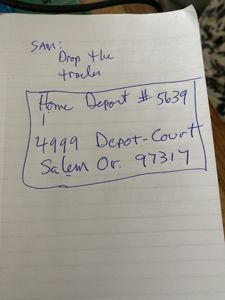 SAM:
Drop the
trailer
Home Depot # 5639
4999 Depot-Court
Salem Or. 97317